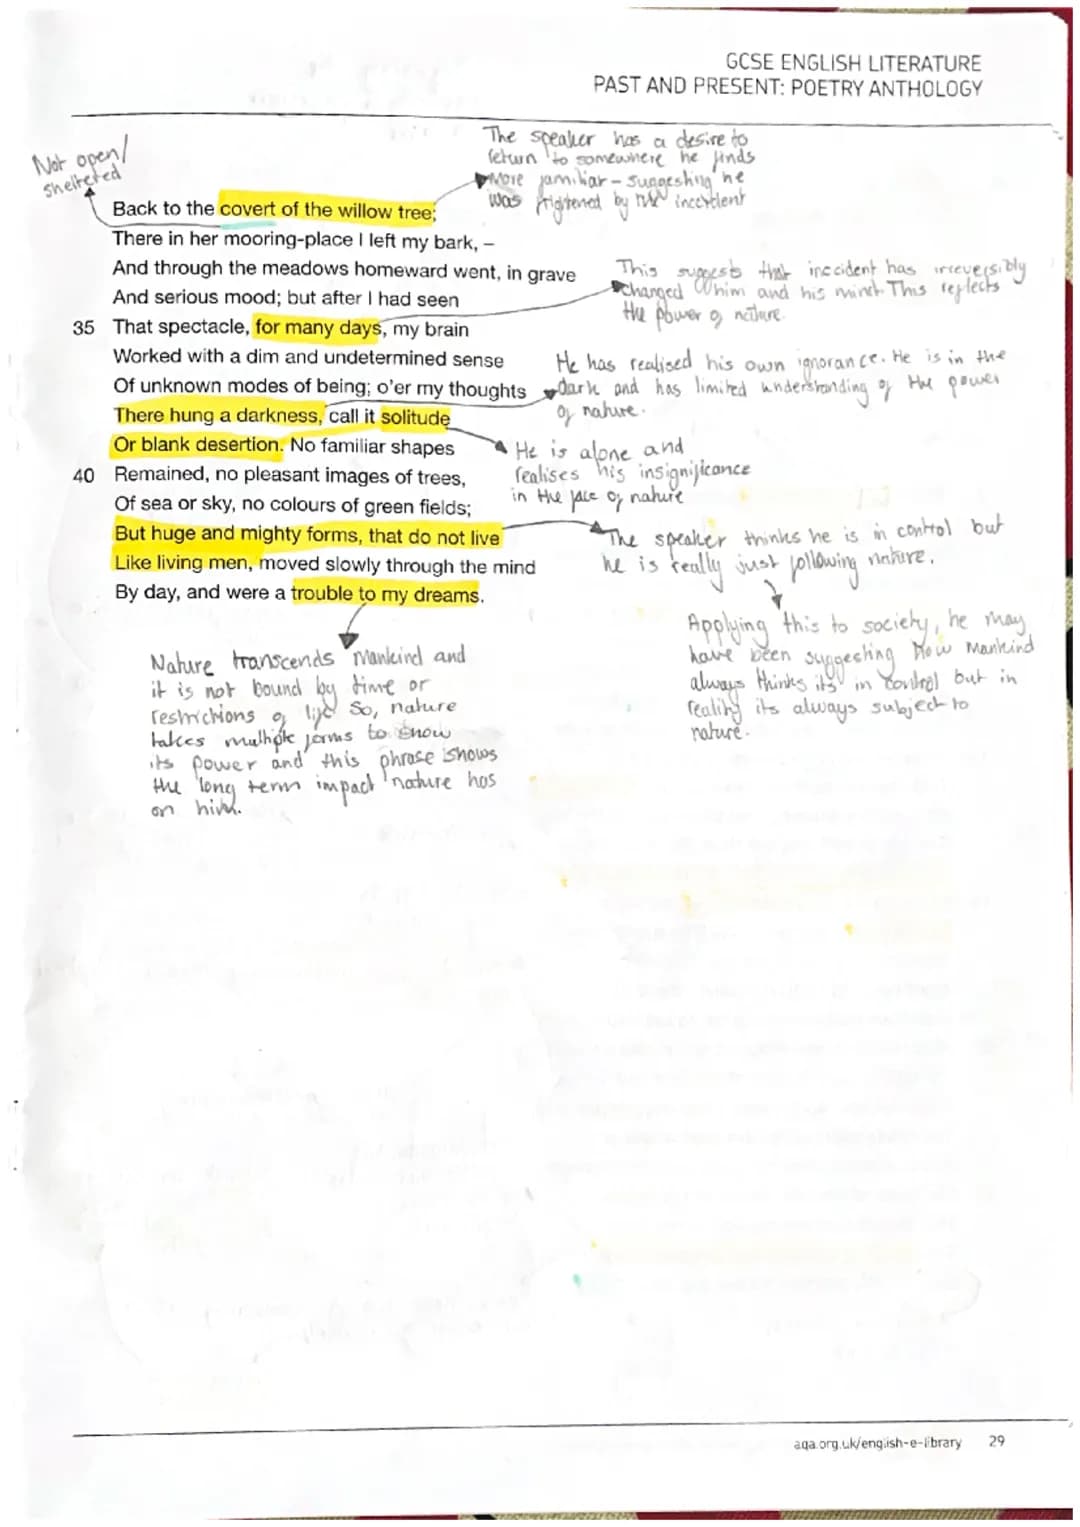 GCSE ENGLISH LITERATURE
PAST AND PRESENT: POETRY ANTHOLOGY
Not open/
sheltered
The speaker has a desire to
return to somewhere he finds
more familiar - suggesting he
was frightened by the inccident
Back to the covert of the willow tree;
There in her mooring-place I left my bark, –
And through the meadows homeward went, in grave
And serious mood; but after I had seen
35 That spectacle, for many days, my brain
Worked with a dim and undetermined sense
Of unknown modes of being; o'er my thoughts
There hung a darkness, call it solitude
Or blank desertion. No familiar shapes
40 Remained, no pleasant images of trees,
Of sea or sky, no colours of green fields;
But huge and mighty forms, that do not live
Like living men, moved slowly through the mind
By day, and were a trouble to my dreams.
This suggests that inccident has irreversibly
changed him and his mind. This reflects
the power of nature.
He has realised his own ignorance. He is in the
dark and has limited understanding of the power
of nature.
He is alone and
realises his insignificance
in the face of nature
The speaker thinks he is in control but
he is really just following nature.
Applying this to society, he may
have been suggesting how mankind
always thinks its in control but in
reality its always subject to
nature.
Nature transcends mankind and
it is not bound by time or
restrictions of life. So, nature
takes multiple forms to show
its power and this phrase shows
the long term impact nature has
on him.
aqa.org.uk/english-e-library 29